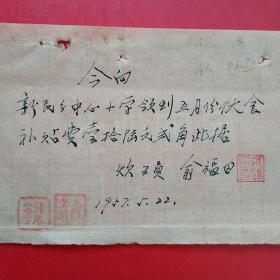 今向
新民乡中心小学领到五月份伙食
补贴费壹拾陆元贰角此据
炊事员 俞福田
1957.5.22.